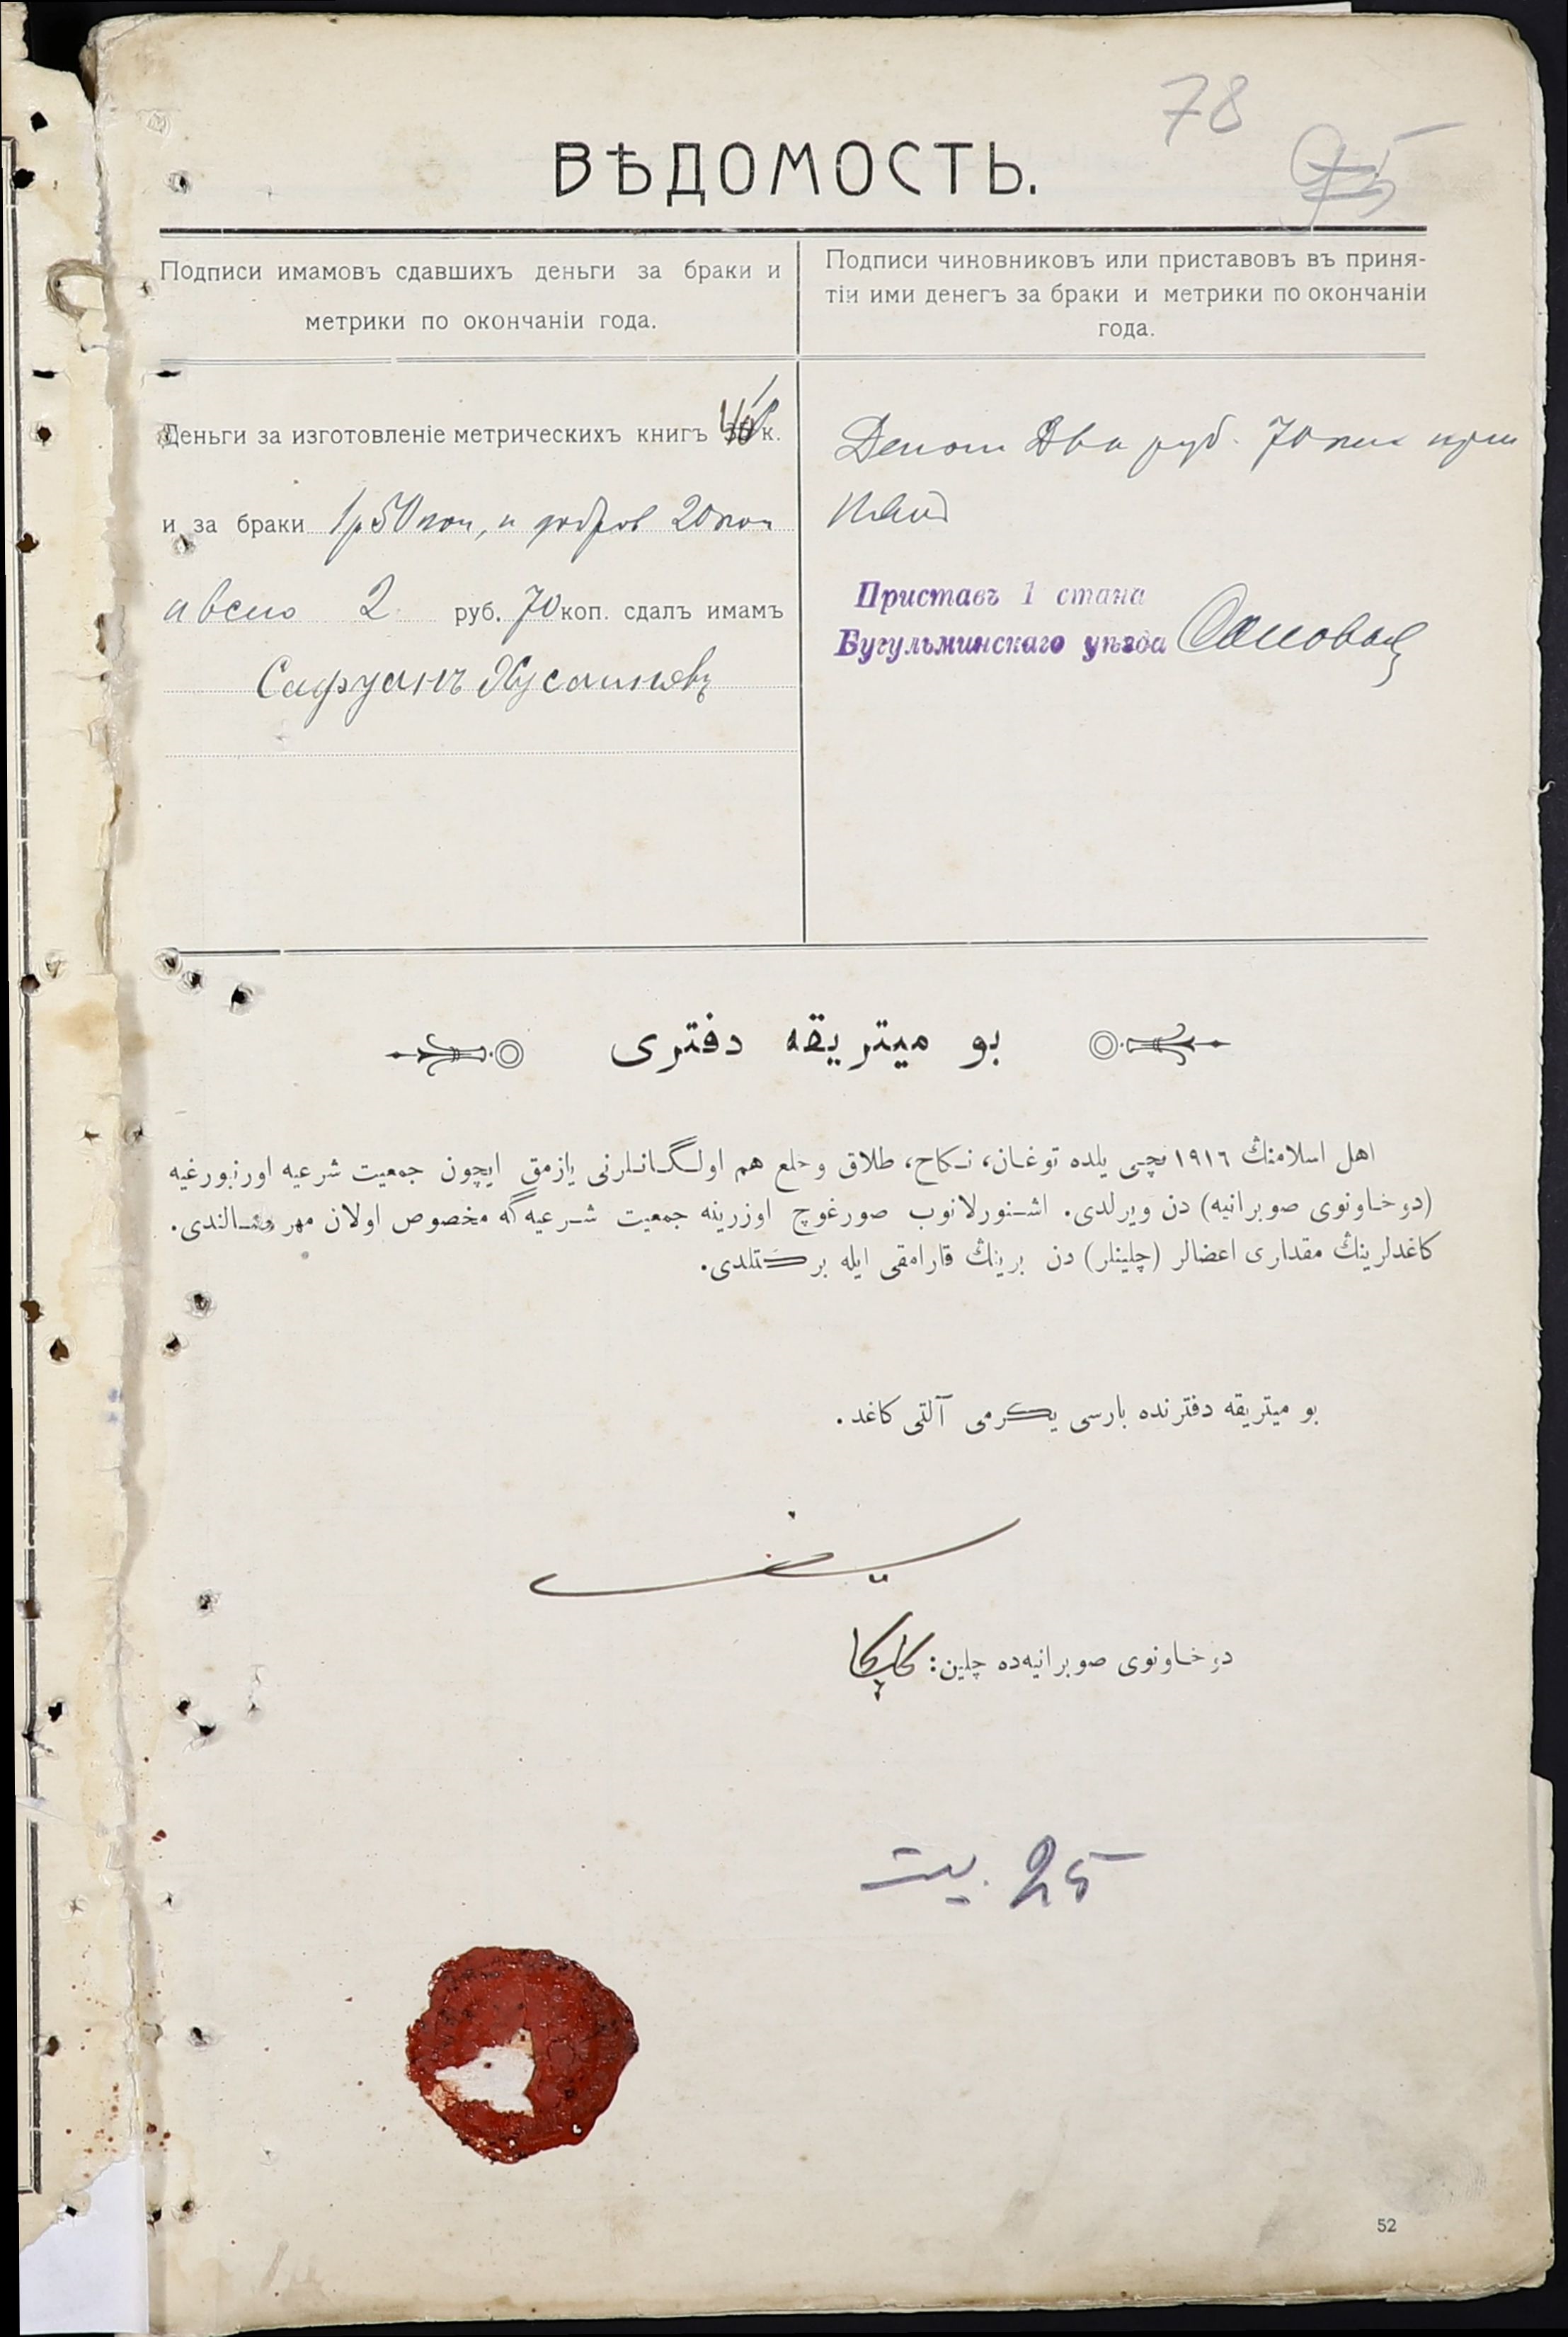 78
95
ВѢДОМОСТЬ.
Подписи имамовъ сдавшихъ деньги за браки и
метрики по окончаніи года.
Подписи чиновниковъ или приставовъ въ приня-
тіи ими денегъ за браки и метрики по окончаніи
года.
Деньги за изготовленіе метрическихъ книгъ к.
и за браки 1р50коп, и 20коп
а всего 2 руб. 70 коп. сдалъ имамъ
Сафуанъ Хусаиновъ
Два руб. 70 коп
Приставъ 1 стана
Бугульминскаго уѣзда
بو ميتريقه دفترى
اهل اسلامنڭ ١٩١٦ نچى يلده توغان، نكاح، طلاق وخلع هم اولگانلرنى يازمق ايچون جمعيت شرعيه اورنبورغيه
(دوخاونوى صوبرانيه) دن ويرلدى. اشنورلانوب صورغوچ اوزرينه جمعيت شرعيه گه مخصوص اولان مهر صالندى.
كاغدلرينڭ مقدارى اعضالر (چلينلر) دن برينڭ قارامقى ايله بركتلدى.
بو ميتريقه دفترنده بارسى يكرمى آلتى كاغد.
دوخاونوى صوبرانيه ده چلين:
25 بيت
52